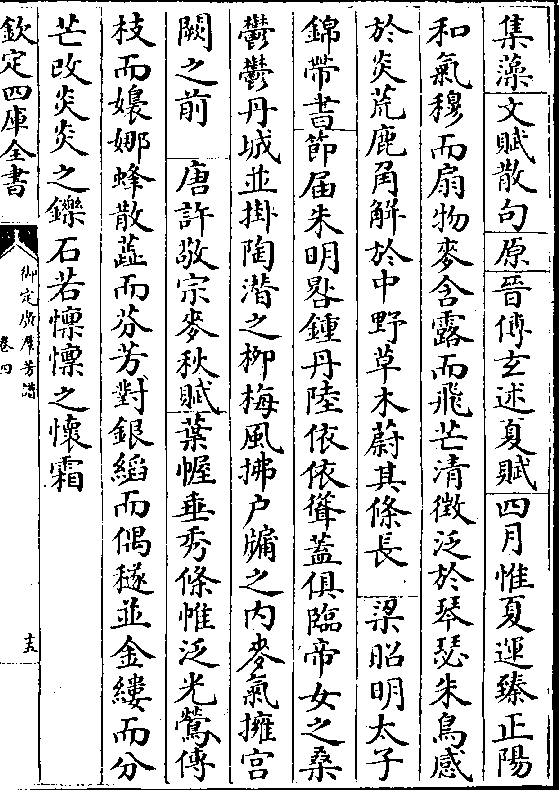 集藻文賦散句原晉傅玄述夏賦四月惟夏運臻正陽
和氣穆而扇物麥含露而飛芒清徴泛於琴瑟朱鳥感
於炎荒鹿角解於中野草木蔚其條長 梁昭明太子
錦帶書節届朱明晷鍾丹陸依依聳蓋俱臨帝女之桑
鬱鬱丹城並掛陶潛之栁梅風拂户牖之内麥氣擁宫
闕之前 唐許敬宗麥秋賦葉幄垂秀條帷泛光鶯傳
枝而嬝娜蜂散蕋而芬芳對銀縚而偶穟並金縷而分
芒改炎炎之鑠石若懍懍之懐霜
欽定四庫全書
御定廣羣芳譜
卷四
十五